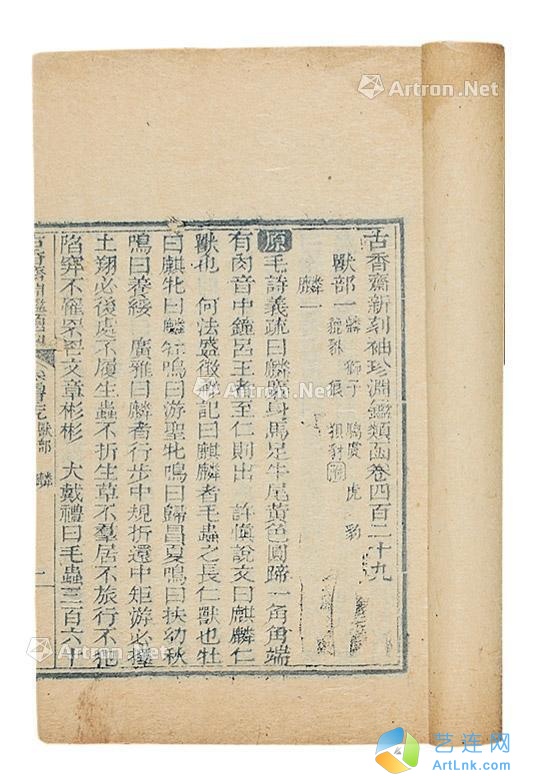 古香齋新刻袖珍淵鑑類函卷四百二十九
獸部一 麟 獅子 騶虞 虎 豹
貔貅 狼
麟一
原毛詩義疏曰麟麕身馬足牛尾黃色圓蹄一角角端
有肉音中鐘呂王者至仁則出 許慎說文曰麒麟仁
獸也 何法盛徵祥記曰麒麟者毛蟲之長仁獸也牡
曰麒牝曰麟牡鳴曰游聖牝鳴曰歸昌夏鳴曰扶幼秋
鳴曰養綏 廣雅曰麟者行步中規折還中矩游必擇
土翔必後處不履生蟲不折生草不羣居不旅行不犯
陷穽不罹罘罔文章彬彬 大戴禮曰毛蟲三百六十
獸部 麟 一
Artron.Net
Artron.Net
Artron.Net
Artron.Net
艺连网
ArtLnk.com